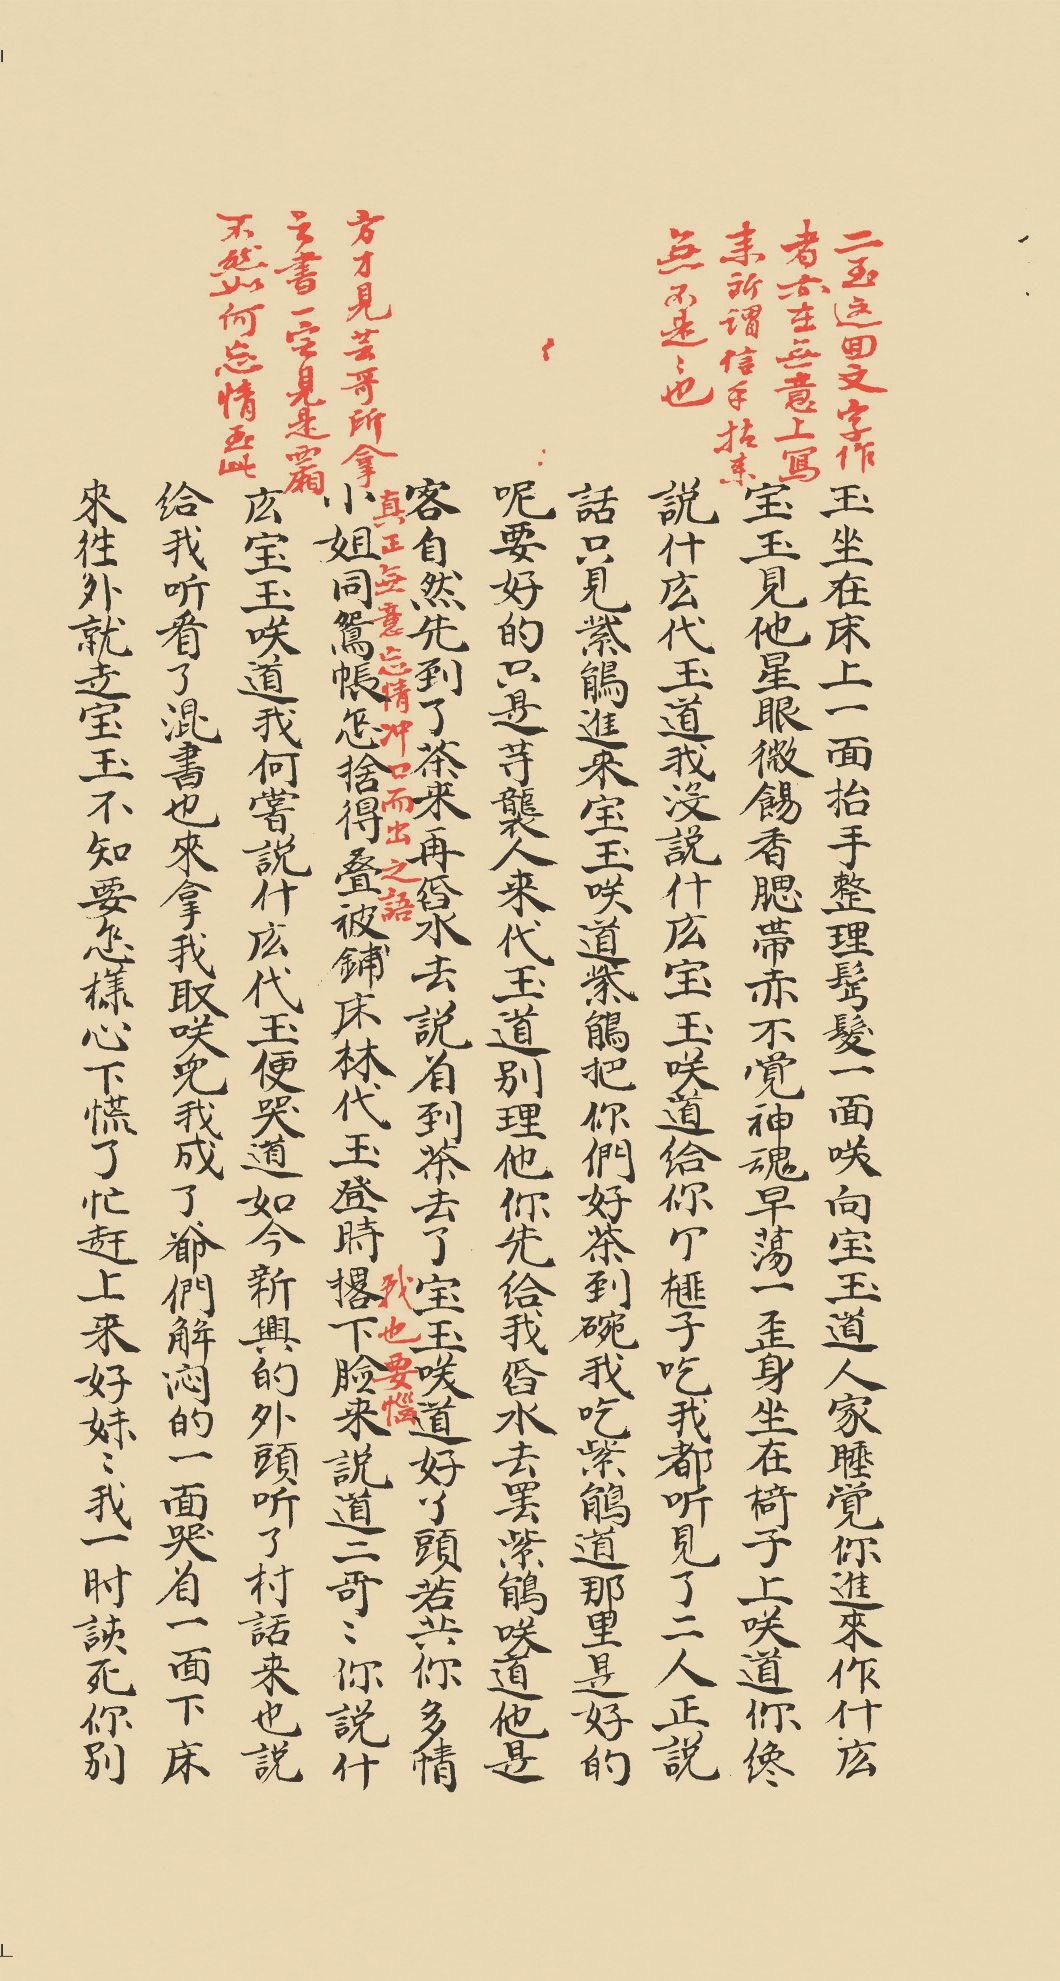 二玉这回文字作
者亦在無意上寫
来所謂信手拈来
無不是〻也
玉坐在床上一面抬手整理髩髮一面咲向宝玉道人家睡觉你進來作什庅
宝玉見他星眼微餳香腮帶赤不觉神魂早蕩一歪身坐在椅子上咲道你纔
說什庅代玉道我沒說什庅宝玉咲道給你个榧子吃我都听見了二人正說
話只見紫鵑進来宝玉咲道紫鵑把你們好茶到碗我吃紫鵑道那里是好的
呢要好的只是等襲人来代玉道別理他你先給我舀水去罢紫鵑咲道他是
客自然先到了茶来再舀水去說着到茶去了宝玉咲道好丫頭若共你多情
真正無意忘情冲口而出之語
我也要惱
方才見芸哥所拿
之書一定見是西廂
不然如何忘情至此
小姐同鴛帳怎捨得叠被鋪床林代玉登時撂下臉来說道二哥〻你說什
庅宝玉咲道我何嘗說什庅代玉便哭道如今新興的外頭听了村話来也說
給我听看了混書也來拿我取咲兒我成了爺們解悶的一面哭着一面下床
來徃外就走宝玉不知要怎樣心下慌了忙赶上来好妹〻我一时該死你別